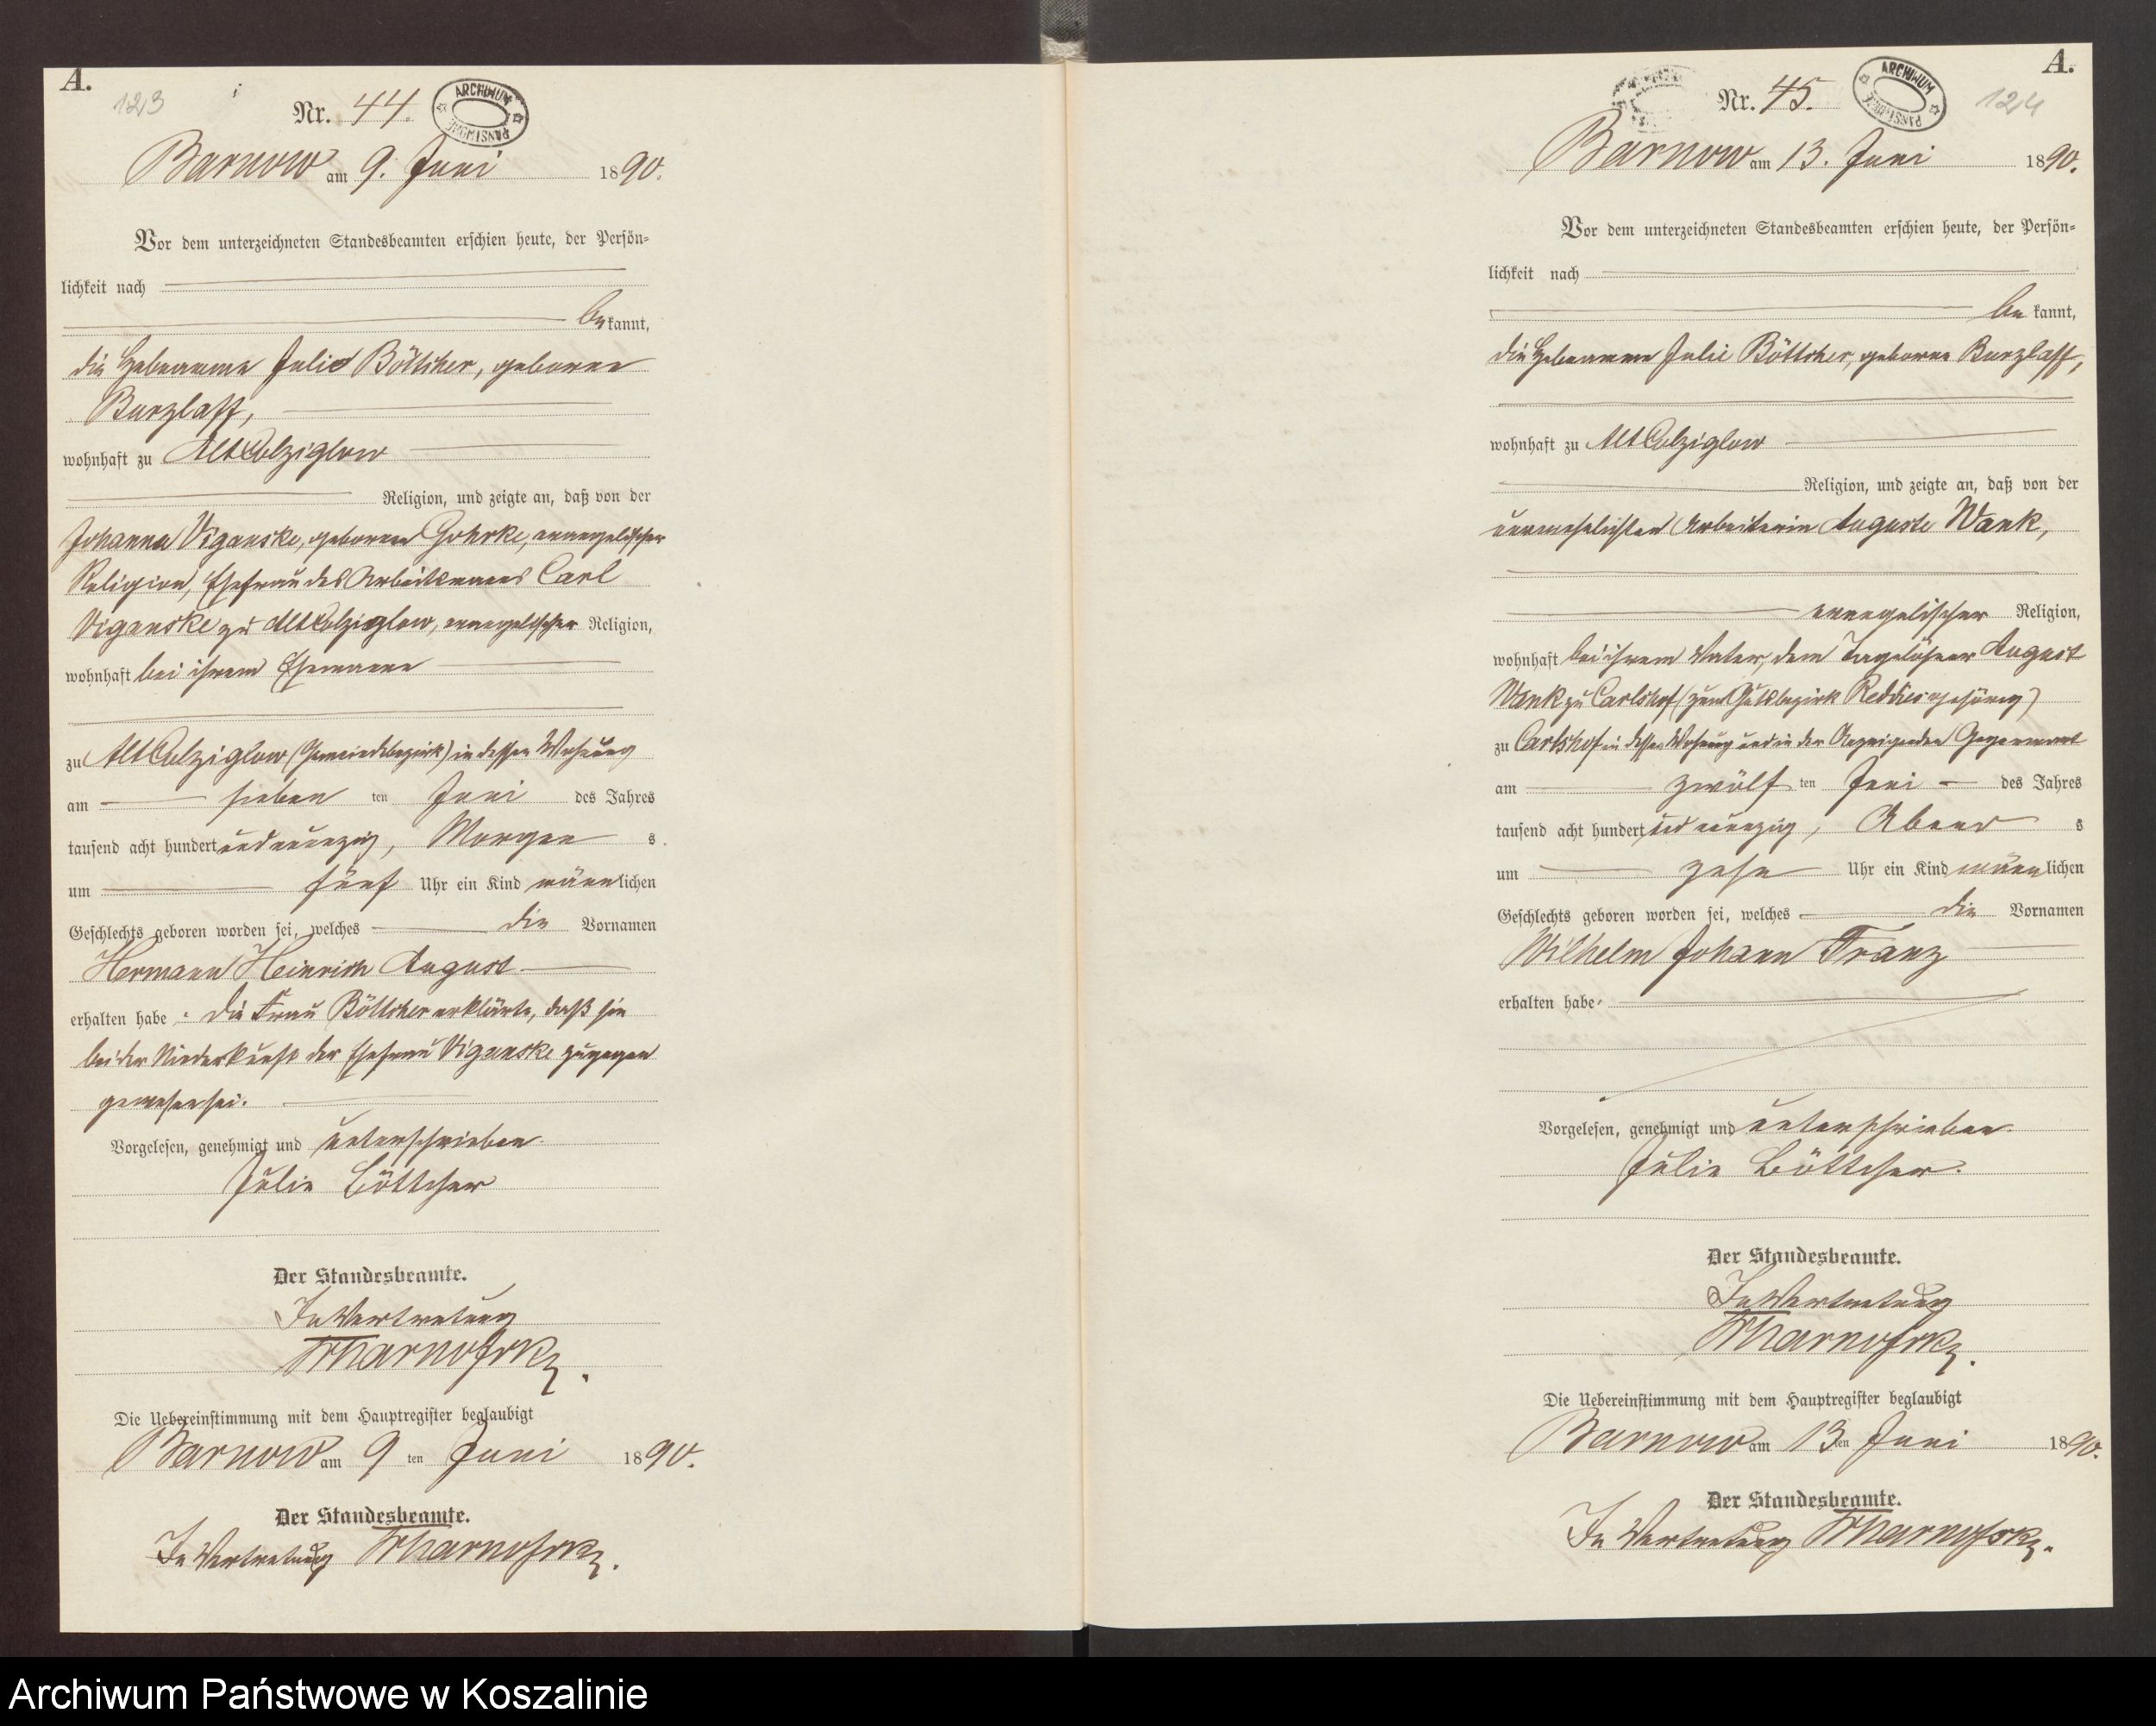 A.
123
Nr. 44.
ARCHIWUM PAŃSTWOWE
Barnow am 9. Juni 1890.
Vor dem unterzeichneten Standesbeamten erschien heute, der Persön-
lichkeit nach
bekannt,
die Hebeamme Julie Böttcher, geborene
Burzlaff,
wohnhaft zu Alt Colziglow
Religion, und zeigte an, daß von der
Johanna Viganske, geborenen Gohrke, evangelischer
Religion, Ehefrau des Arbeitsmanns Carl
Viganske zu Alt Colziglow, evangelischer Religion,
wohnhaft bei ihrem Ehemanne
zu Alt Colziglow (Gemeindebezirk) in dessen Wohnung
am sieben ten Juni des Jahres
tausend acht hundert und neunzig, Morgens
um fünf Uhr ein Kind männlichen
Geschlechts geboren worden sei, welches die Vornamen
Hermann Heinrich August
erhalten habe. Die Frau Böttcher erklärte, daß sie
bei der Niederkunft der Ehefrau Viganske zugegen
gewesen sei.
Vorgelesen, genehmigt und unterschrieben
Julie Böttcher
Der Standesbeamte.
In Vertretung
Die Uebereinstimmung mit dem Hauptregister beglaubigt
Barnow am 9 ten Juni 1890.
Der Standesbeamte.
In Vertretung
A.
Nr. 45.
ARCHIWUM PAŃSTWOWE
124
Barnow am 13. Juni 1890.
Vor dem unterzeichneten Standesbeamten erschien heute, der Persön-
lichkeit nach
bekannt,
die Hebeamme Julie Böttcher, geborene Burzlaff,
wohnhaft zu Alt Colziglow
Religion, und zeigte an, daß von der
unverehelichten Arbeiterin Auguste Wank,
evangelischer Religion,
wohnhaft bei ihrem Vater, dem Tagelöhner August
Wank zu Carlshof (zum Gutsbezirk Reddies gehörig)
zu Carlshof in dessen Wohnung und in der Anzeigenden Gegenwart
am zwölf ten Juni des Jahres
tausend acht hundert und neunzig, Abends
um zehn Uhr ein Kind männlichen
Geschlechts geboren worden sei, welches die Vornamen
Wilhelm Johann Franz
erhalten habe.
Vorgelesen, genehmigt und unterschrieben.
Julie Böttcher.
Der Standesbeamte.
In Vertretung
Die Uebereinstimmung mit dem Hauptregister beglaubigt
Barnow am 13 ten Juni 1890.
Der Standesbeamte.
In Vertretung
Archiwum Państwowe w Koszalinie